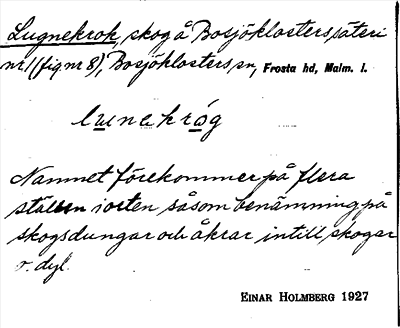 Lugnekrok, skog å Bosjöklosters säteri
nr 1 (fig nr 8), Bosjöklosters sn, Frosta hd, Malm. l.
lunakróg
Namnet förekommer på flera
ställen i orten såsom benämning på
skogsdungar och åkrar intill skogar
o. dyl.
EINAR HOLMBERG 1927